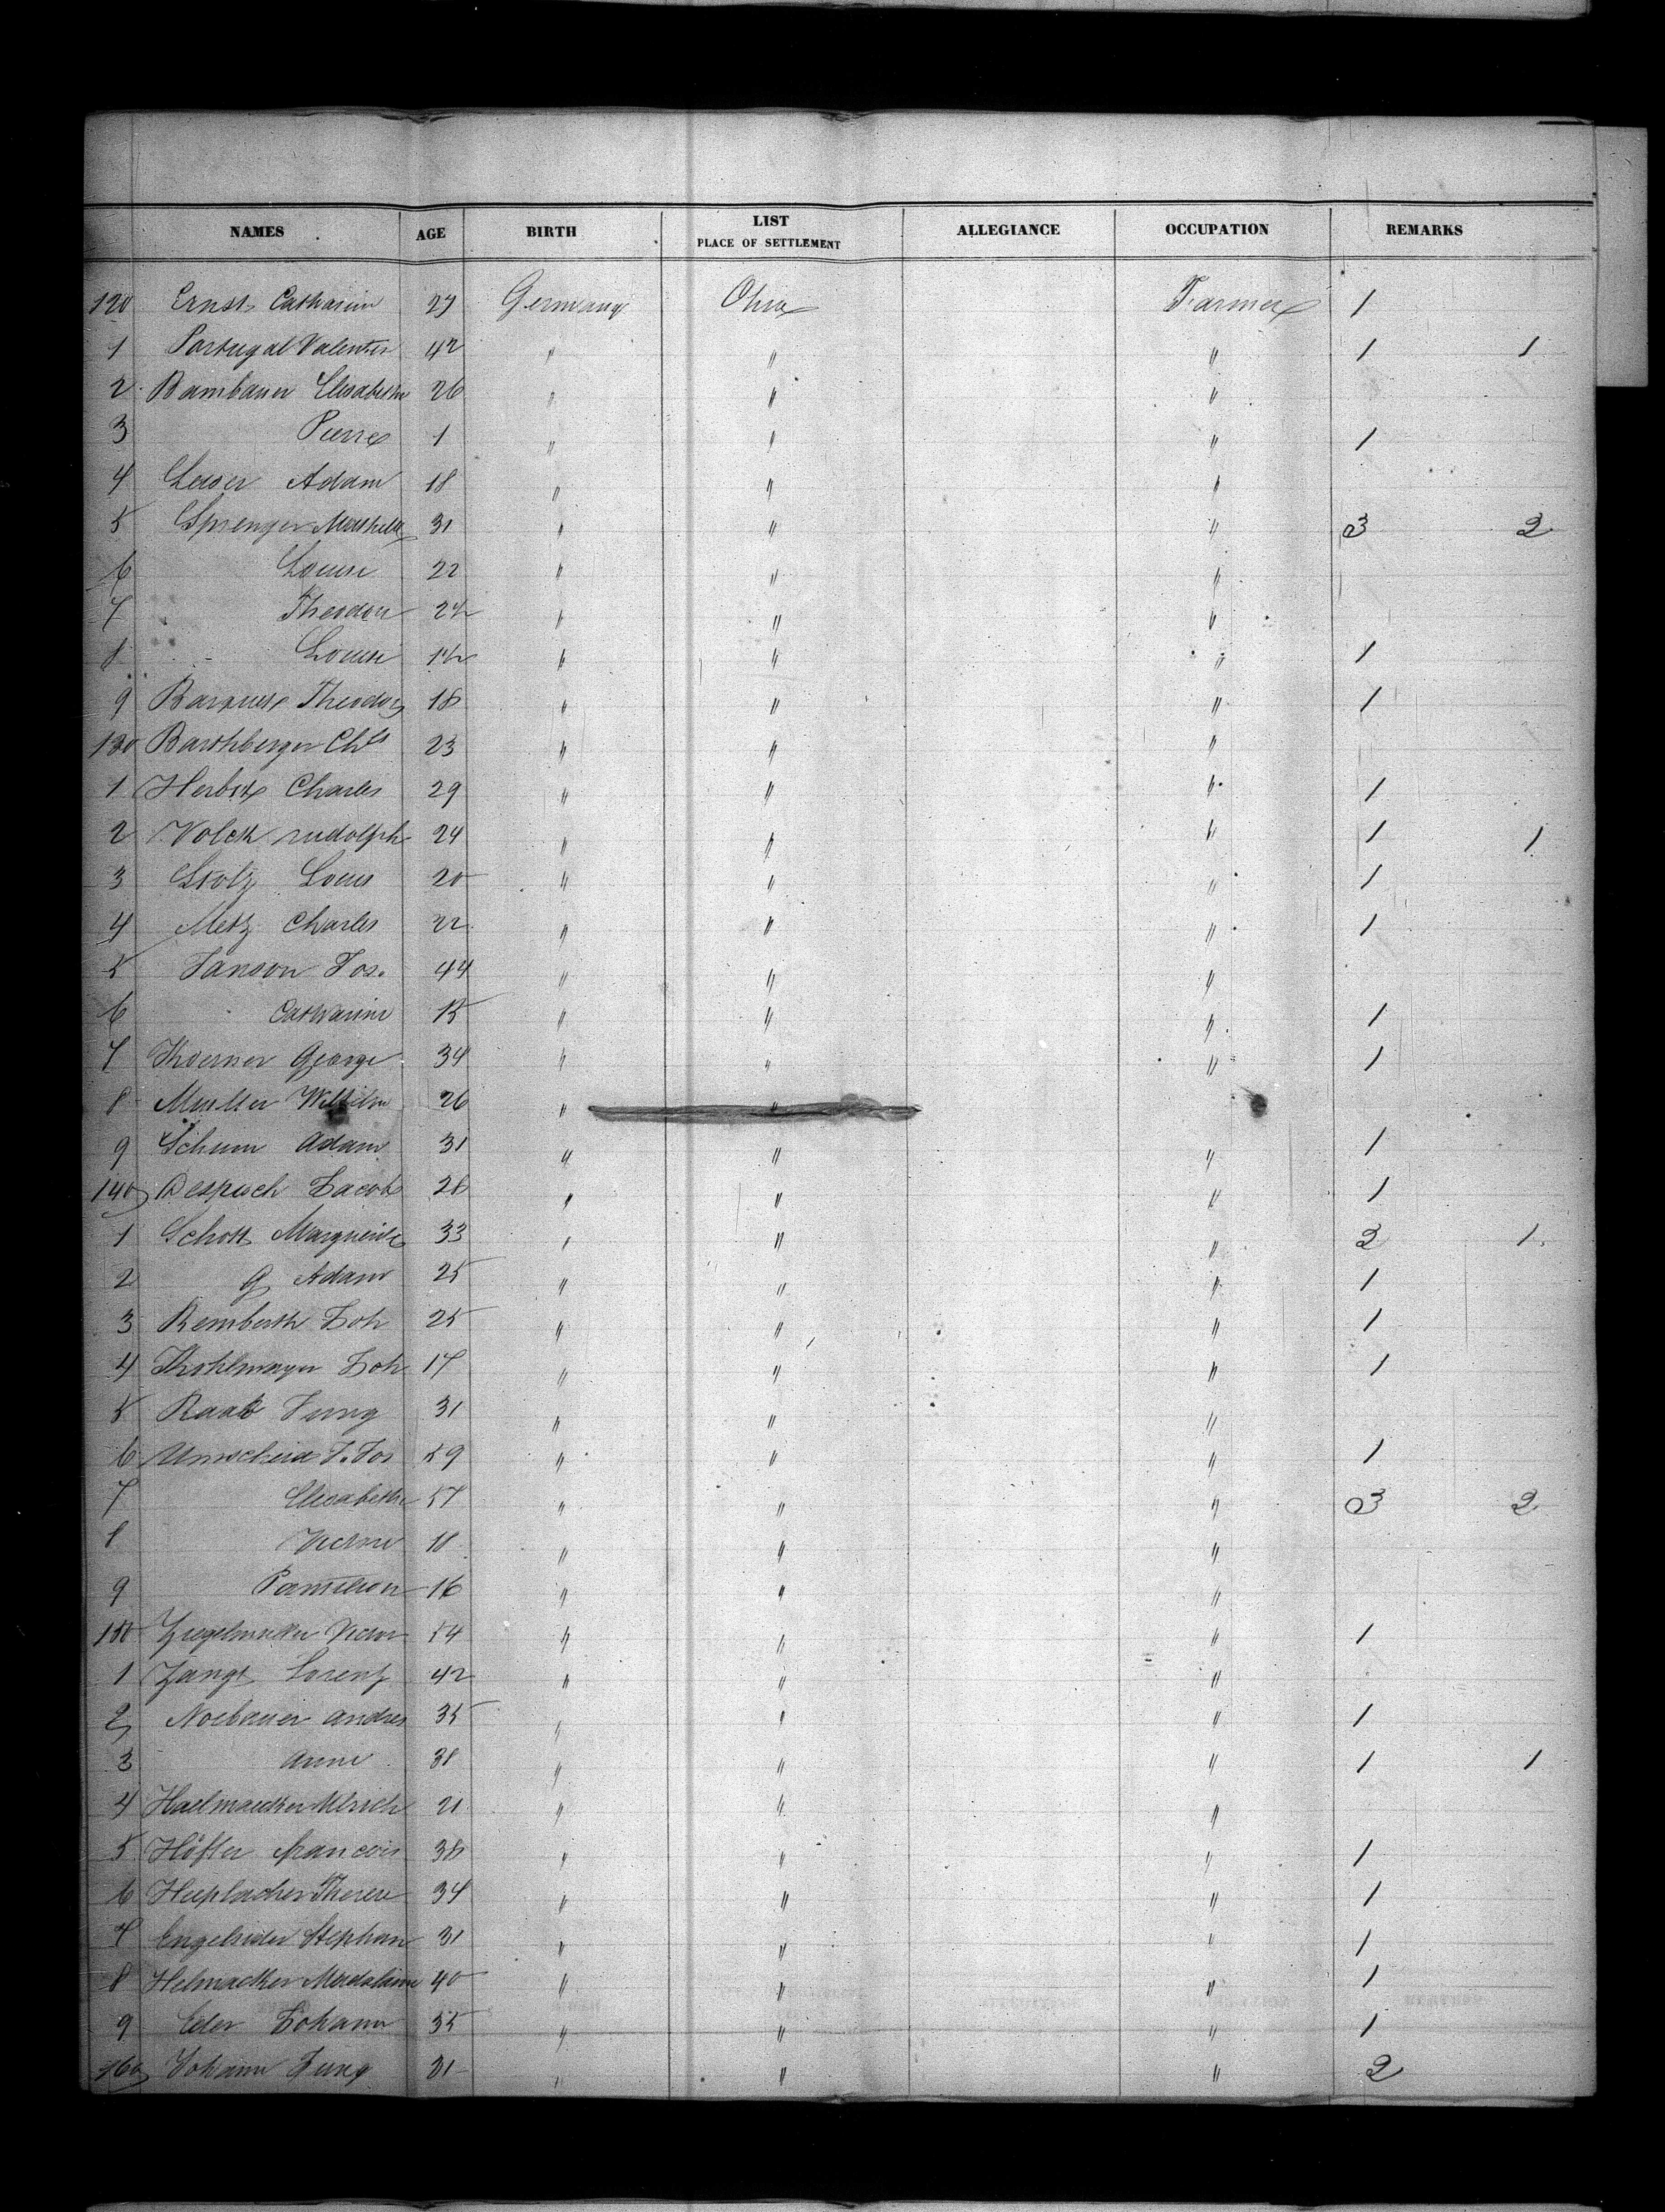 LIST
NAMES AGE BIRTH PLACE OF SETTLEMENT ALLEGIANCE OCCUPATION REMARKS
120 Ernst Catharine 27 Germany Ohio Farmer 1
1 Portugal Valentin 42 " " " 1 1
2 Bambauer Elisabeth 26 " " "
3 Pierre 1 " " " 1
4 Adam 18 " " "
5 Sprenger 31 " " " 3 2
6 Louise 22 " " "
7 Theodor 24 " " "
8 Louise 14 " " " 1
9 Theodor 18 " " " 1
130 Barthberger Chls 23 " " "
1 Herbst Charles 29 " " " 1
2 Volck rudolph 24 " " " 1 1
3 Stolz Louis 20 " " " 1
4 Metz Charles 22 " " " 1
5 Janson Jos. 44 " " "
6 Catharine 15 " " " 1
7 Koerner George 34 " " " 1
8 Mueller Wilhelm 26 " "
9 Schum Adam 31 " " " 1
140 Despisch Jacob 28 " " " 1
1 Schott Marguerite 33 " " " 2 1
2 G Adam 25 " " " 1
3 Remberth Joh 25 " " " 1
4 Kohlmayer Joh 17 " " " 1
5 Raab Jung 31 " " "
6 Umscheid J. Jos 59 " " " 1
7 Elisabeth 57 " " " 3 2
8 Victor 18 " " "
9 16 " " "
150 Victor 54 " " " 1
1 Zangt Lorenz 42 " " "
2 Noebauer andres 35 " " " 1
3 Anne 38 " " " 1 1
4 Ulrich 21 " " "
5 Höfler francois 38 " " " 1
6 Therese 34 " " " 1
7 Stephan 31 " " " 1
8 Helmacker Madalaine 40 " " " 1
9 Eder Johann 35 " " " 1
160 Johann Jung 31 " " " 2